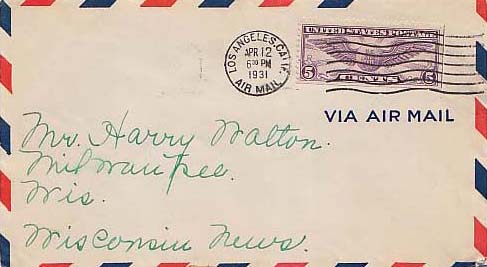 LOS ANGELES, CALIF.
APR 12
6 30 PM
1931
AIR MAIL
UNITED STATES POSTAGE
5 CENTS 5
VIA AIR MAIL
Mr. Harry Walton.
Milwaukee.
Wis.
Wisconsin News.